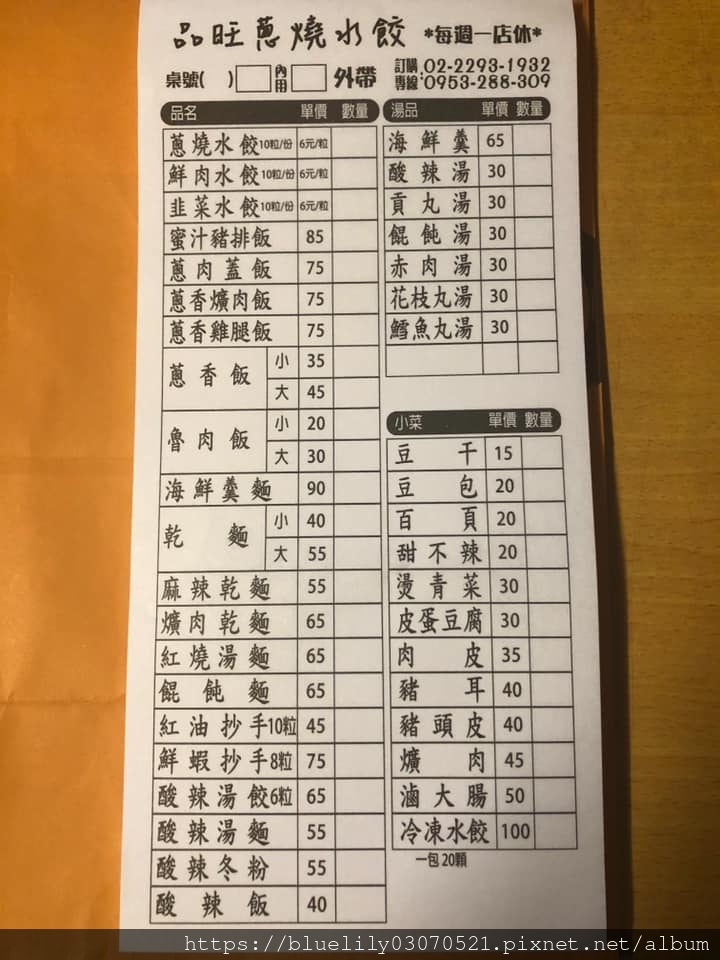 品旺蔥燒水餃 *每週一店休*
桌號( ) 內用 外帶
訂購專線:02-2293-1932
0953-288-309
品名 單價 數量
蔥燒水餃10粒/份 6元/粒
鮮肉水餃10粒/份 6元/粒
韭菜水餃10粒/份 6元/粒
蜜汁豬排飯 85
蔥肉蓋飯 75
蔥香爌肉飯 75
蔥香雞腿飯 75
蔥香飯 小 35
大 45
魯肉飯 小 20
大 30
海鮮羹麵 90
乾麵 小 40
大 55
麻辣乾麵 55
爌肉乾麵 65
紅燒湯麵 65
餛飩麵 65
紅油抄手10粒 45
鮮蝦抄手8粒 75
酸辣湯餃6粒 65
酸辣湯麵 55
酸辣冬粉 55
酸辣飯 40
湯品 單價 數量
海鮮羹 65
酸辣湯 30
貢丸湯 30
餛飩湯 30
赤肉湯 30
花枝丸湯 30
鱈魚丸湯 30
小菜 單價 數量
豆干 15
豆包 20
百頁 20
甜不辣 20
燙青菜 30
皮蛋豆腐 30
肉皮 35
豬耳 40
豬頭皮 40
爌肉 45
滷大腸 50
冷凍水餃 100
一包20顆
https://bluelily03070521.pixnet.net/album